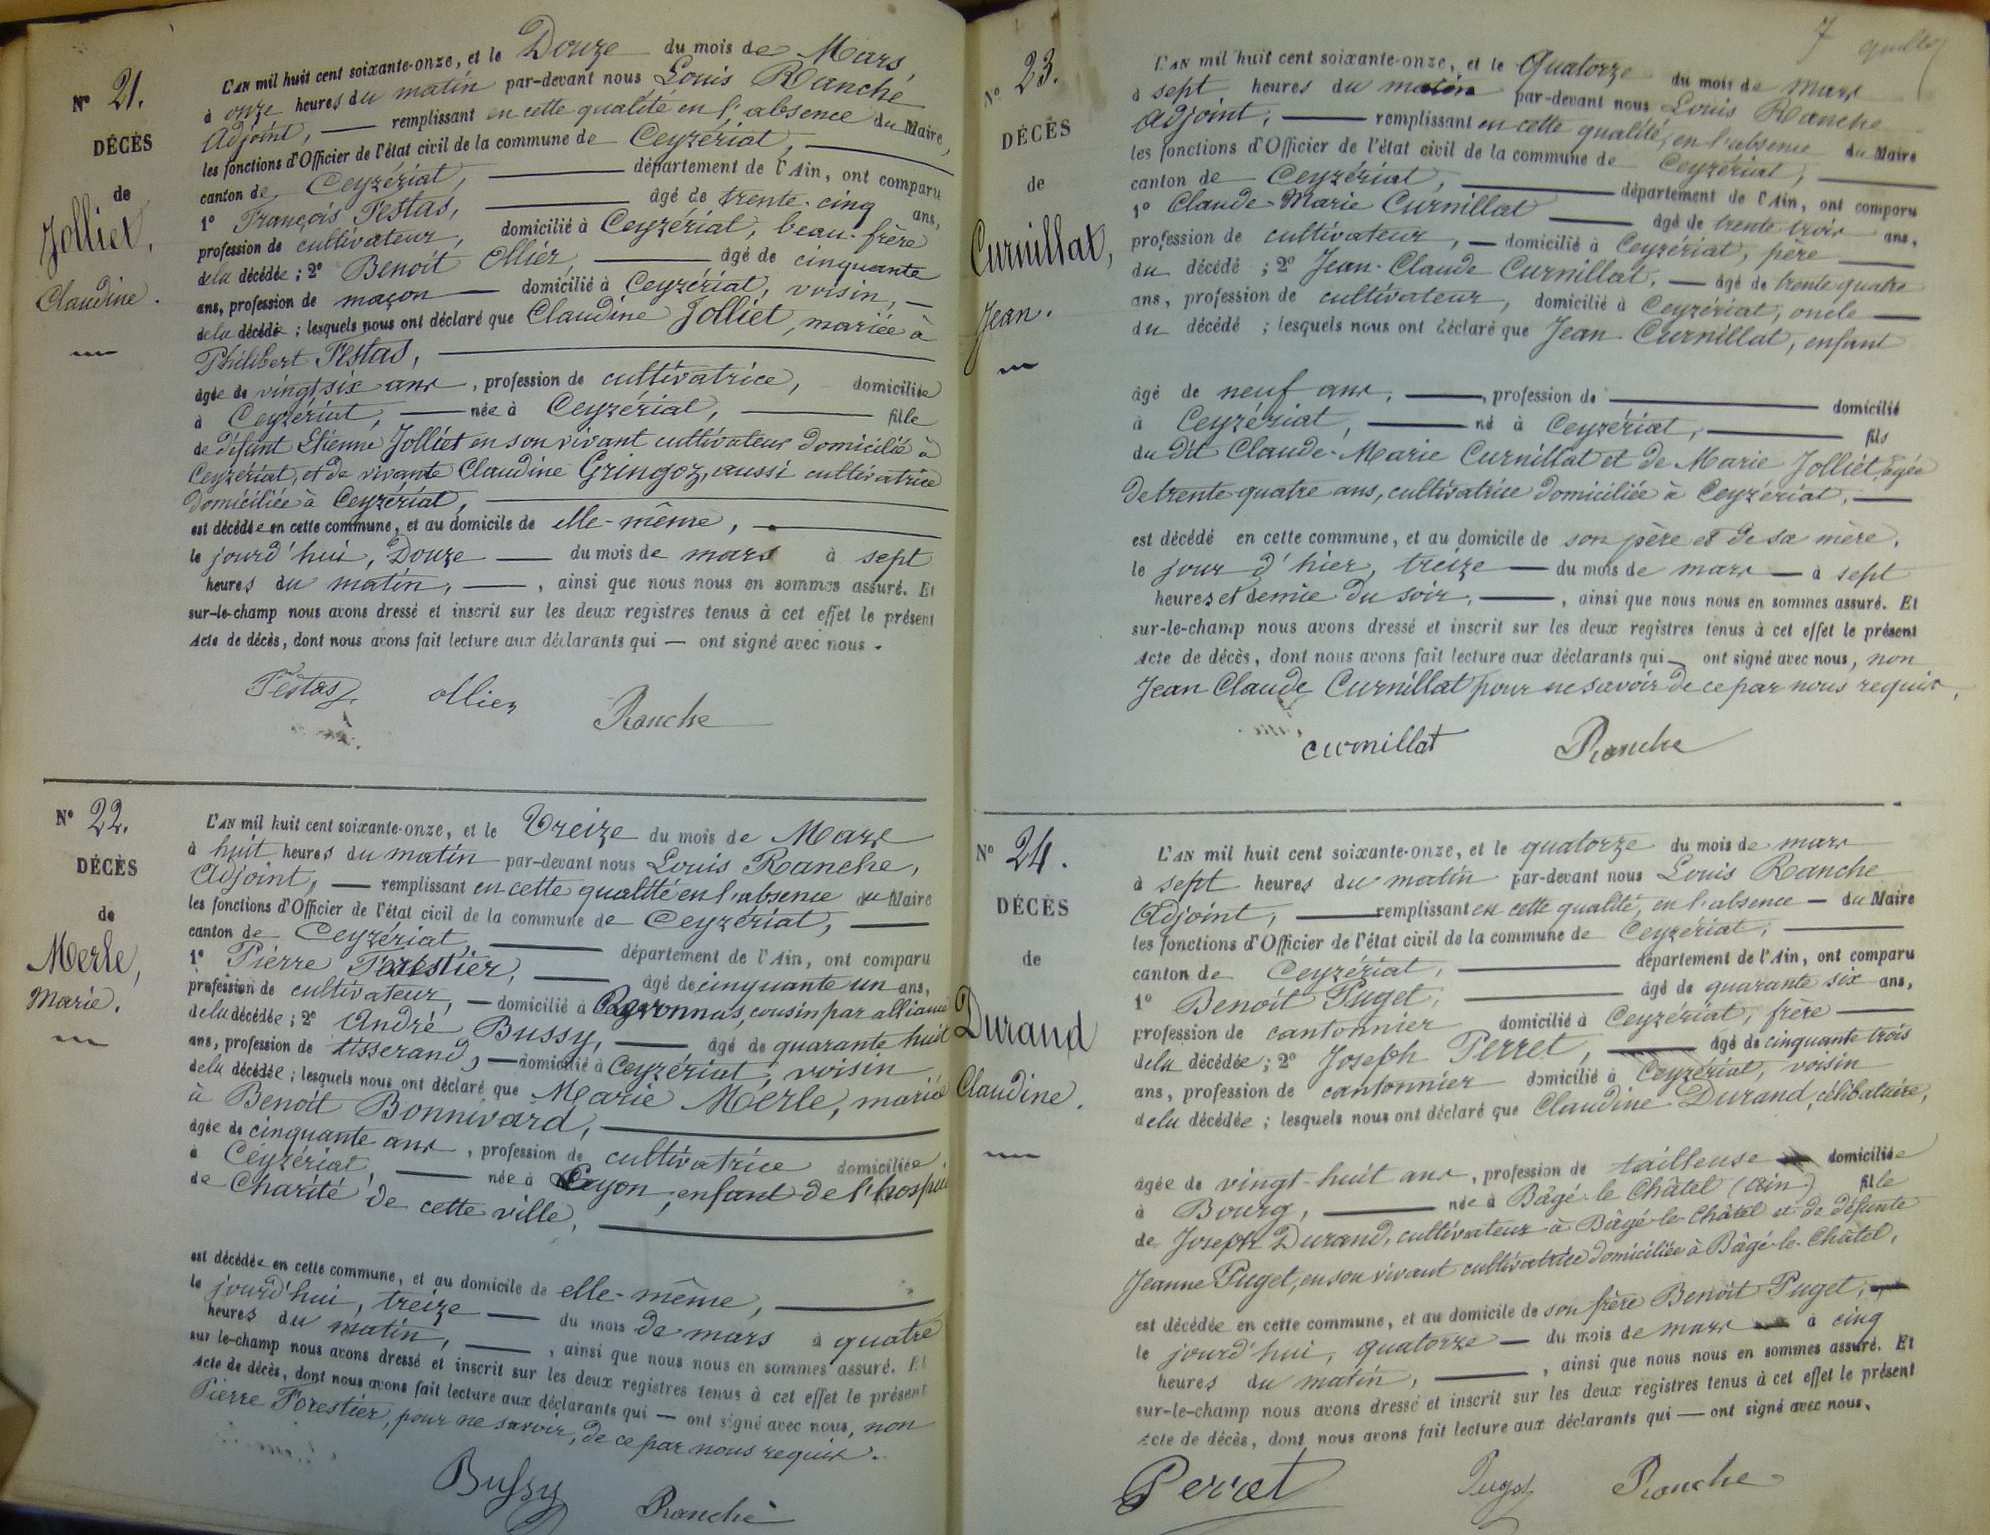 N° 21.
DÉCÈS
de
Jolliet,
Claudine.
L'AN mil huit cent soixante-onze, et le Douze du mois de Mars,
à onze heures du matin par-devant nous Louis Ranche
Adjoint, — remplissant en cette qualité en l'absence du Maire,
les fonctions d'Officier de l'état civil de la commune de Ceyzériat,
canton de Ceyzériat, département de l'Ain, ont comparu
1° François Testas, âgé de trente-cinq ans,
profession de cultivateur, domicilié à Ceyzériat, beau-frère
de la décédée ; 2° Benoit Ollier âgé de cinquante
ans, profession de maçon — domicilié à Ceyzériat, voisin, —
de la décédée ; lesquels nous ont déclaré que Claudine Jolliet, mariée à
Philibert Testas,
âgée de vingt six ans, profession de cultivatrice, domiciliée
à Ceyzériat, — née à Ceyzériat, fille
de défunt Etienne Jolliet en son vivant cultivateur domicilié à
Ceyzériat, et de vivante Claudine Gringoz, aussi cultivatrice
domiciliée à Ceyzériat,
est décédée en cette commune, et au domicile de elle-même,
le jourd'hui, Douze — du mois de mars à sept
heures du matin, — , ainsi que nous nous en sommes assuré. Et
sur-le-champ nous avons dressé et inscrit sur les deux registres tenus à cet effet le présent
Acte de décès, dont nous avons fait lecture aux déclarants qui — ont signé avec nous.
Testas Ollier Ranche
N° 22.
DÉCÈS
de
Merle,
Marie.
L'AN mil huit cent soixante-onze, et le Treize du mois de Mars
à huit heures du matin par-devant nous Louis Ranche,
Adjoint, — remplissant en cette qualité en l'absence du Maire
les fonctions d'Officier de l'état cicil de la commune de Ceyzériat,
canton de Ceyzériat, département de l'Ain, ont comparu
1° Pierre Forestier, âgé de cinquante un ans,
profession de cultivateur, — domicilié à Revonnas, cousin par alliance
de la décédée ; 2° André Bussy, — âgé de quarante huit
ans, profession de tisserand, — domicilié à Ceyzériat, voisin
de la décédée ; lesquels nous ont déclaré que Marie Merle, mariée
à Benoit Bonnivard,
âgée de cinquante ans, profession de cultivatrice domiciliée
à Ceyzériat, — née à Lyon, enfant de l'hospice
de Charité de cette ville,
est décédée en cette commune, et au domicile de elle-même,
le jourd'hui, treize — du mois de mars à quatre
heures du matin, — , ainsi que nous nous en sommes assuré. Et
sur le-champ nous avons dressé et inscrit sur les deux registres tenus à cet effet le présent
Acte de décès, dont nous avons fait lecture aux déclarants qui — ont signé avec nous, non
Pierre Forestier, pour ne savoir, de ce par nous requis.
Bussy Ranche
7
N° 23.
DÉCÈS
de
Curnillat,
Jean.
L'AN mil huit cent soixante-onze, et le Quatorze du mois de mars
à sept heures du matin par-devant nous Louis Ranche
Adjoint, — remplissant en cette qualité, en l'absence du Maire
les fonctions d'Officier de l'état civil de la commune de Ceyzériat,
canton de Ceyzériat, département de l'Ain, ont comparu
1° Claude-Marie Curnillat — âgé de trente trois ans,
profession de cultivateur, — domicilié à Ceyzériat, père
du décédé ; 2° Jean-Claude Curnillat, — âgé de trente quatre
ans, profession de cultivateur, domicilié à Ceyzériat, oncle —
du décédé ; lesquels nous ont déclaré que Jean Curnillat, enfant
âgé de neuf ans, —, profession de — domicilié
à Ceyzériat, — né à Ceyzériat, fils
du dit Claude-Marie Curnillat et de Marie Jolliet, âgée
de trente-quatre ans, cultivatrice domiciliée à Ceyzériat, —
est décédé en cette commune, et au domicile de son père et de sa mère,
le jour d'hier, treize — du mois de mars — à sept
heures et demie du soir, — , ainsi que nous nous en sommes assuré. Et
sur-le-champ nous avons dressé et inscrit sur les deux registres tenus à cet effet le présent
Acte de décès, dont nous avons fait lecture aux déclarants qui — ont signé avec nous, non
Jean Claude Curnillat pour ne savoir de ce par nous requis.
curnillat Ranche
N° 24.
DÉCÈS
de
Durand
Claudine.
L'AN mil huit cent soixante-onze, et le quatorze du mois de mars
à sept heures du matin par-devant nous Louis Ranche
Adjoint, — remplissant en cette qualité, en l'absence — du Maire
les fonctions d'Officier de l'état civil de la commune de Ceyzériat,
canton de Ceyzériat, département de l'Ain, ont comparu
1° Benoit Puget, âgé de quarante six ans,
profession de cantonnier domicilié à Ceyzériat, frère —
de la décédée ; 2° Joseph Perret, — âgé de cinquante trois
ans, profession de cantonnier domicilié à Ceyzériat, voisin
de la décédée ; lesquels nous ont déclaré que Claudine Durand, célibataire,
âgée de vingt-huit ans, profession de tailleuse domiciliée
à Bourg, — née à Bâgé-le-Châtel (Ain) fille
de Joseph Durand, cultivateur à Bâgé-le-Châtel et de défunte
Jeanne Puget, en son vivant cultivatrice domiciliée à Bâgé-le-Châtel,
est décédée en cette commune, et au domicile de son frère Benoit Puget,
le jourd'hui, quatorze — du mois de mars à cinq
heures du matin, — , ainsi que nous nous en sommes assuré. Et
sur-le-champ nous avons dressé et inscrit sur les deux registres tenus à cet effet le présent
Acte de décès, dont nous avons fait lecture aux déclarants qui — ont signé avec nous.
Perret Puget Ranche